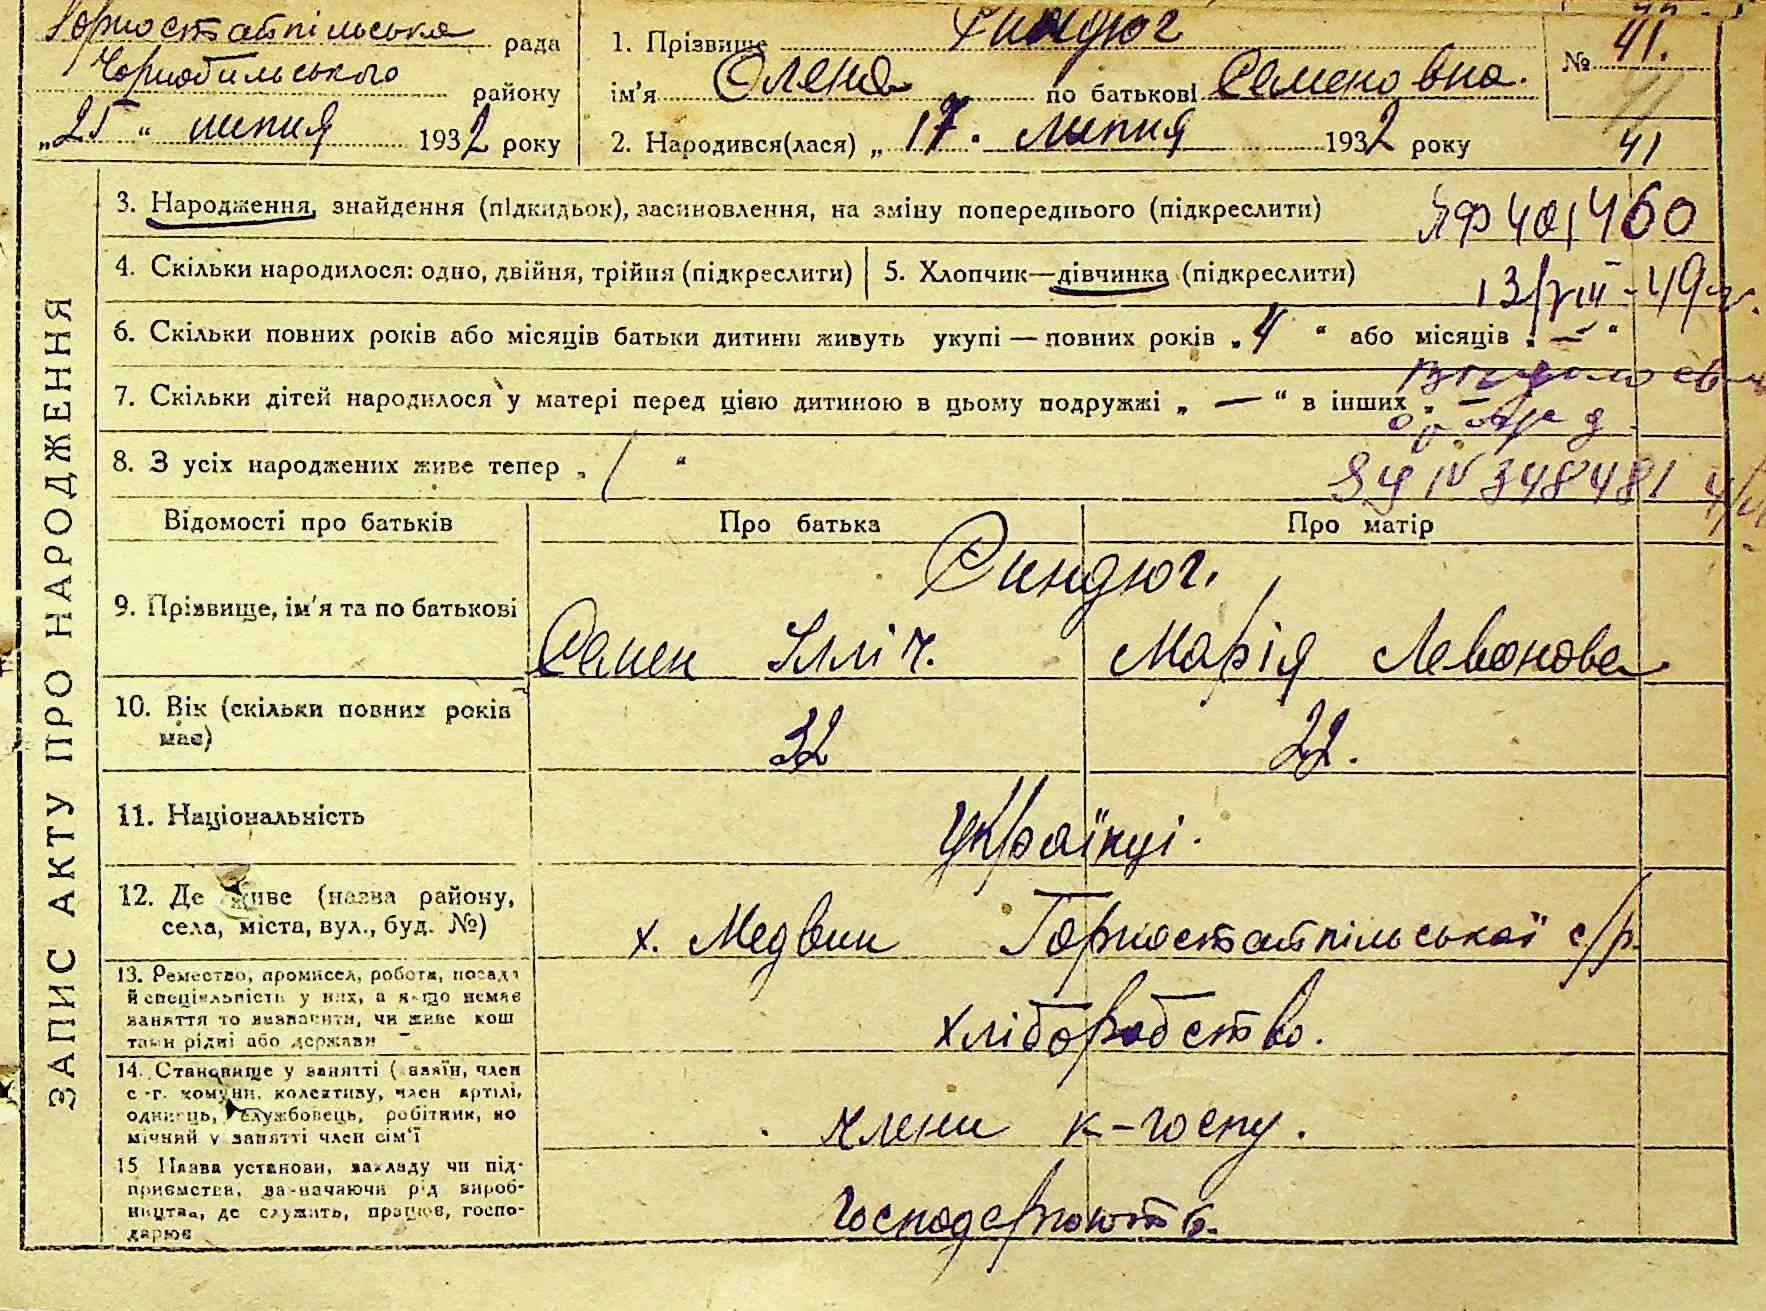 Горностайпільська рада
Чорнобильського району
„25“ липня 1932 року
1. Прізвище Синдюг
ім'я Олена по батькові Семеновна.
2. Народився(лася) „17. липня 1932 року
№ 41.
41
ЗАПИС АКТУ ПРО НАРОДЖЕННЯ
3. Народження, знайдення (підкидьок), засиновлення, на зміну попереднього (підкреслити)
4. Скільки народилося: одно, двійня, трійня (підкреслити)
5. Хлопчик—дівчинка (підкреслити)
13/VIII-49 г.
6. Скільки повних років або місяців батьки дитини живуть укупі — повних років „4“ або місяців „—“
7. Скільки дітей народилося у матері перед цією дитиною в цьому подружжі „—“ в інших „—
8. З усіх народжених живе тепер „1“
348481
Відомості про батьків
Про батька
Про матір
9. Прізвище, ім'я та по батькові
Синдюг.
Семен Ілліч.
Марія Левонова
10. Вік (скільки повних років має)
32
22.
11. Національність
Українці.
12. Де живе (назва району,
села, міста, вул., буд. №)
х. Медвин Горностайпільської с/р.
13. Ремество, промисел, робота, посада
й спеціяльність у них, а якщо немає
заняття то визначити, чи живе кош
тами рідні або держави
хліборобство.
14. Становище у занятті (хазяїн, член
с.-г. комуни, колективу, член артілі,
одинець, службовець, робітник, по
мічний у занятті член сім'ї
члени к-госпу.
15 Назва установи, закладу чи під-
приємства, зазначаючи рід вироб-
ництва, де служить, працює, госпо-
дарює
господарюють.